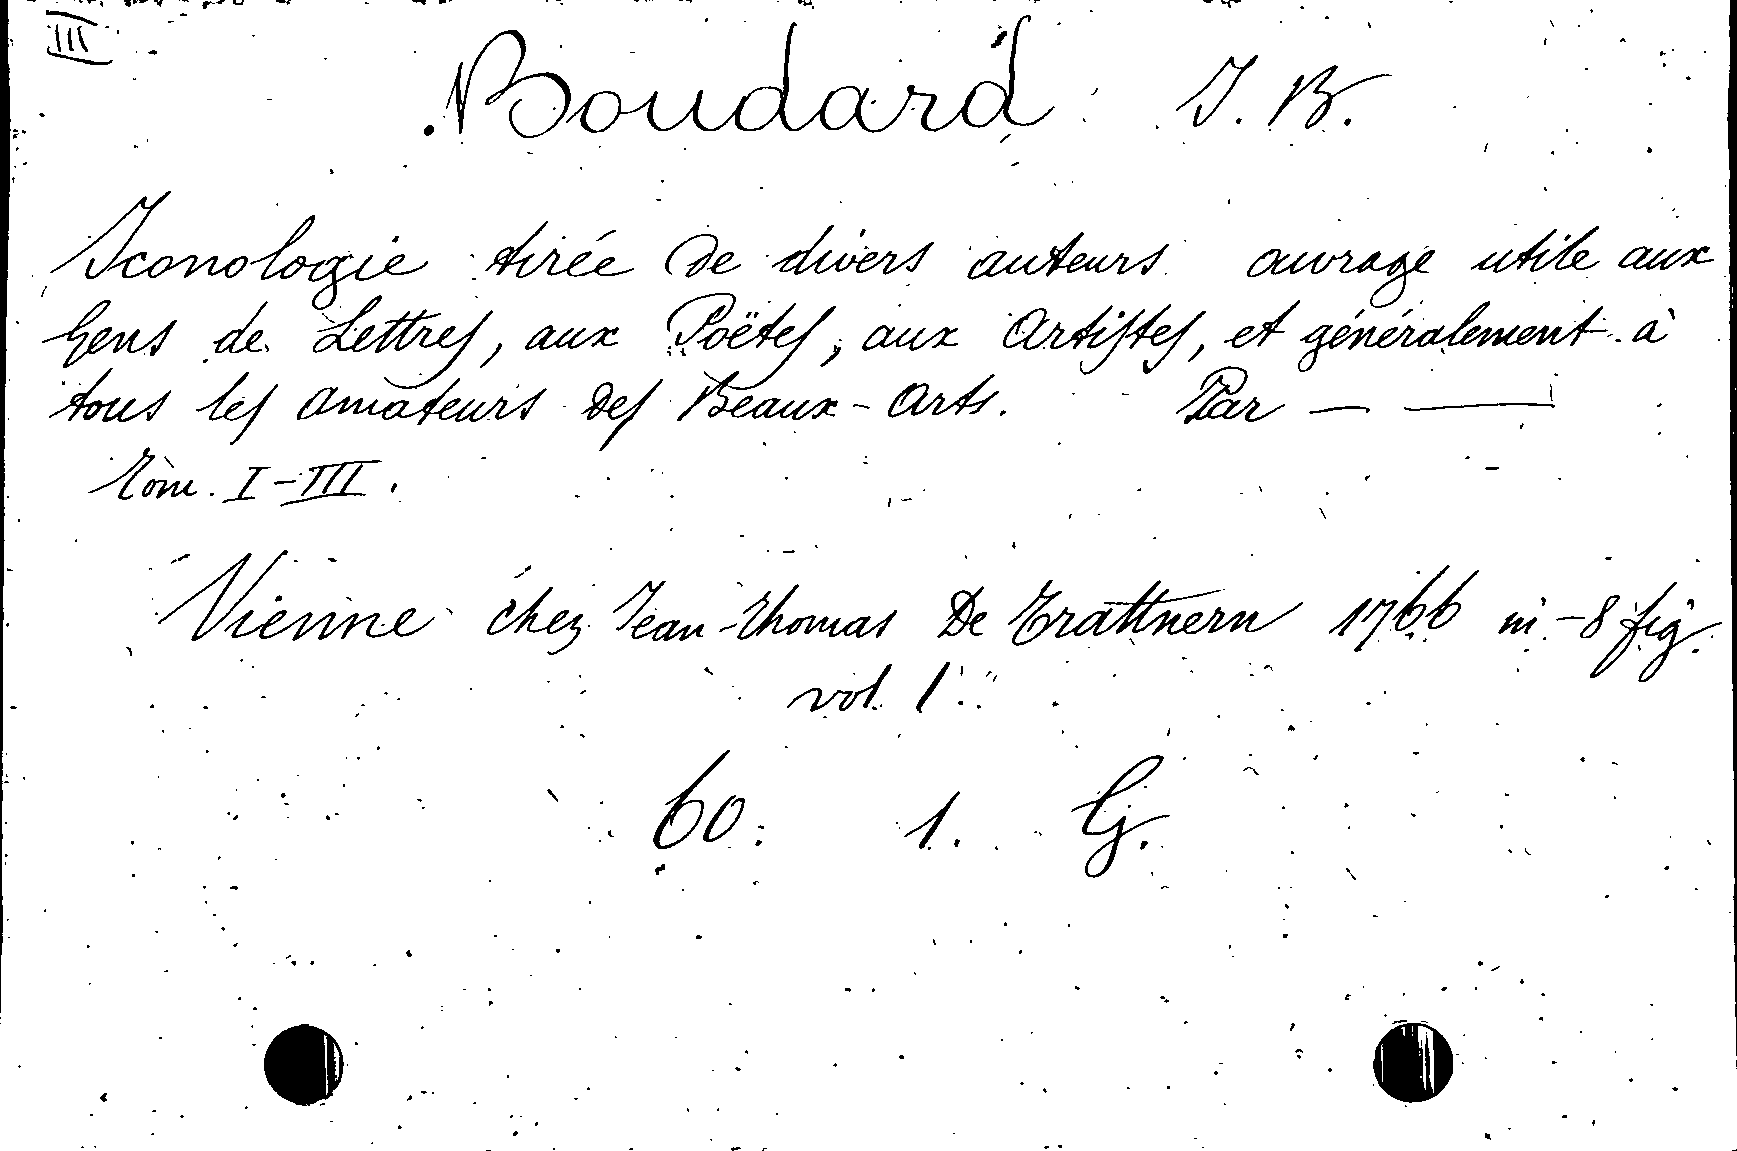 III
Boudard J. B.
Iconologie tirée de divers auteurs ouvrage utile aux
Gens de Lettres, aux Poëtes, aux Artistes, et généralement à
tous les amateurs des Beaux-Arts. Par — ——
Tom. I-III.
Vienne chez Jean-Thomas De Trattnern 1766 in-8 fig.
vol. 1
60. 1. G.